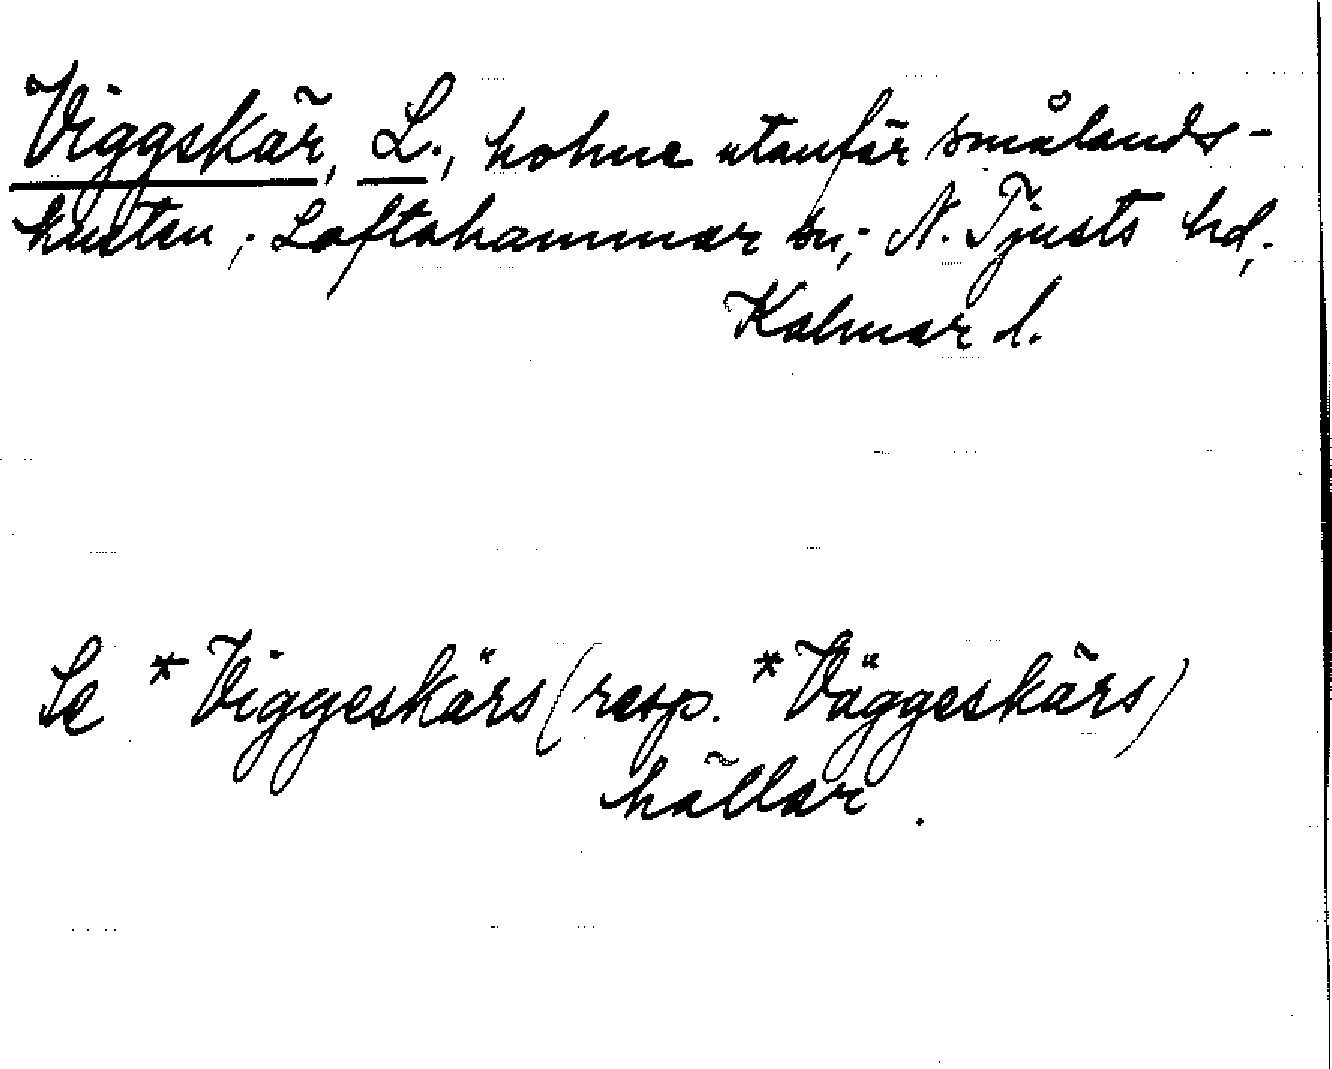 Viggskär, L., holme utanför smålands-
kusten, Loftahammar sn, N. Tjusts hd,
Kalmar l.
Se *Viggeskärs (resp. *Väggeskärs)
hällar.